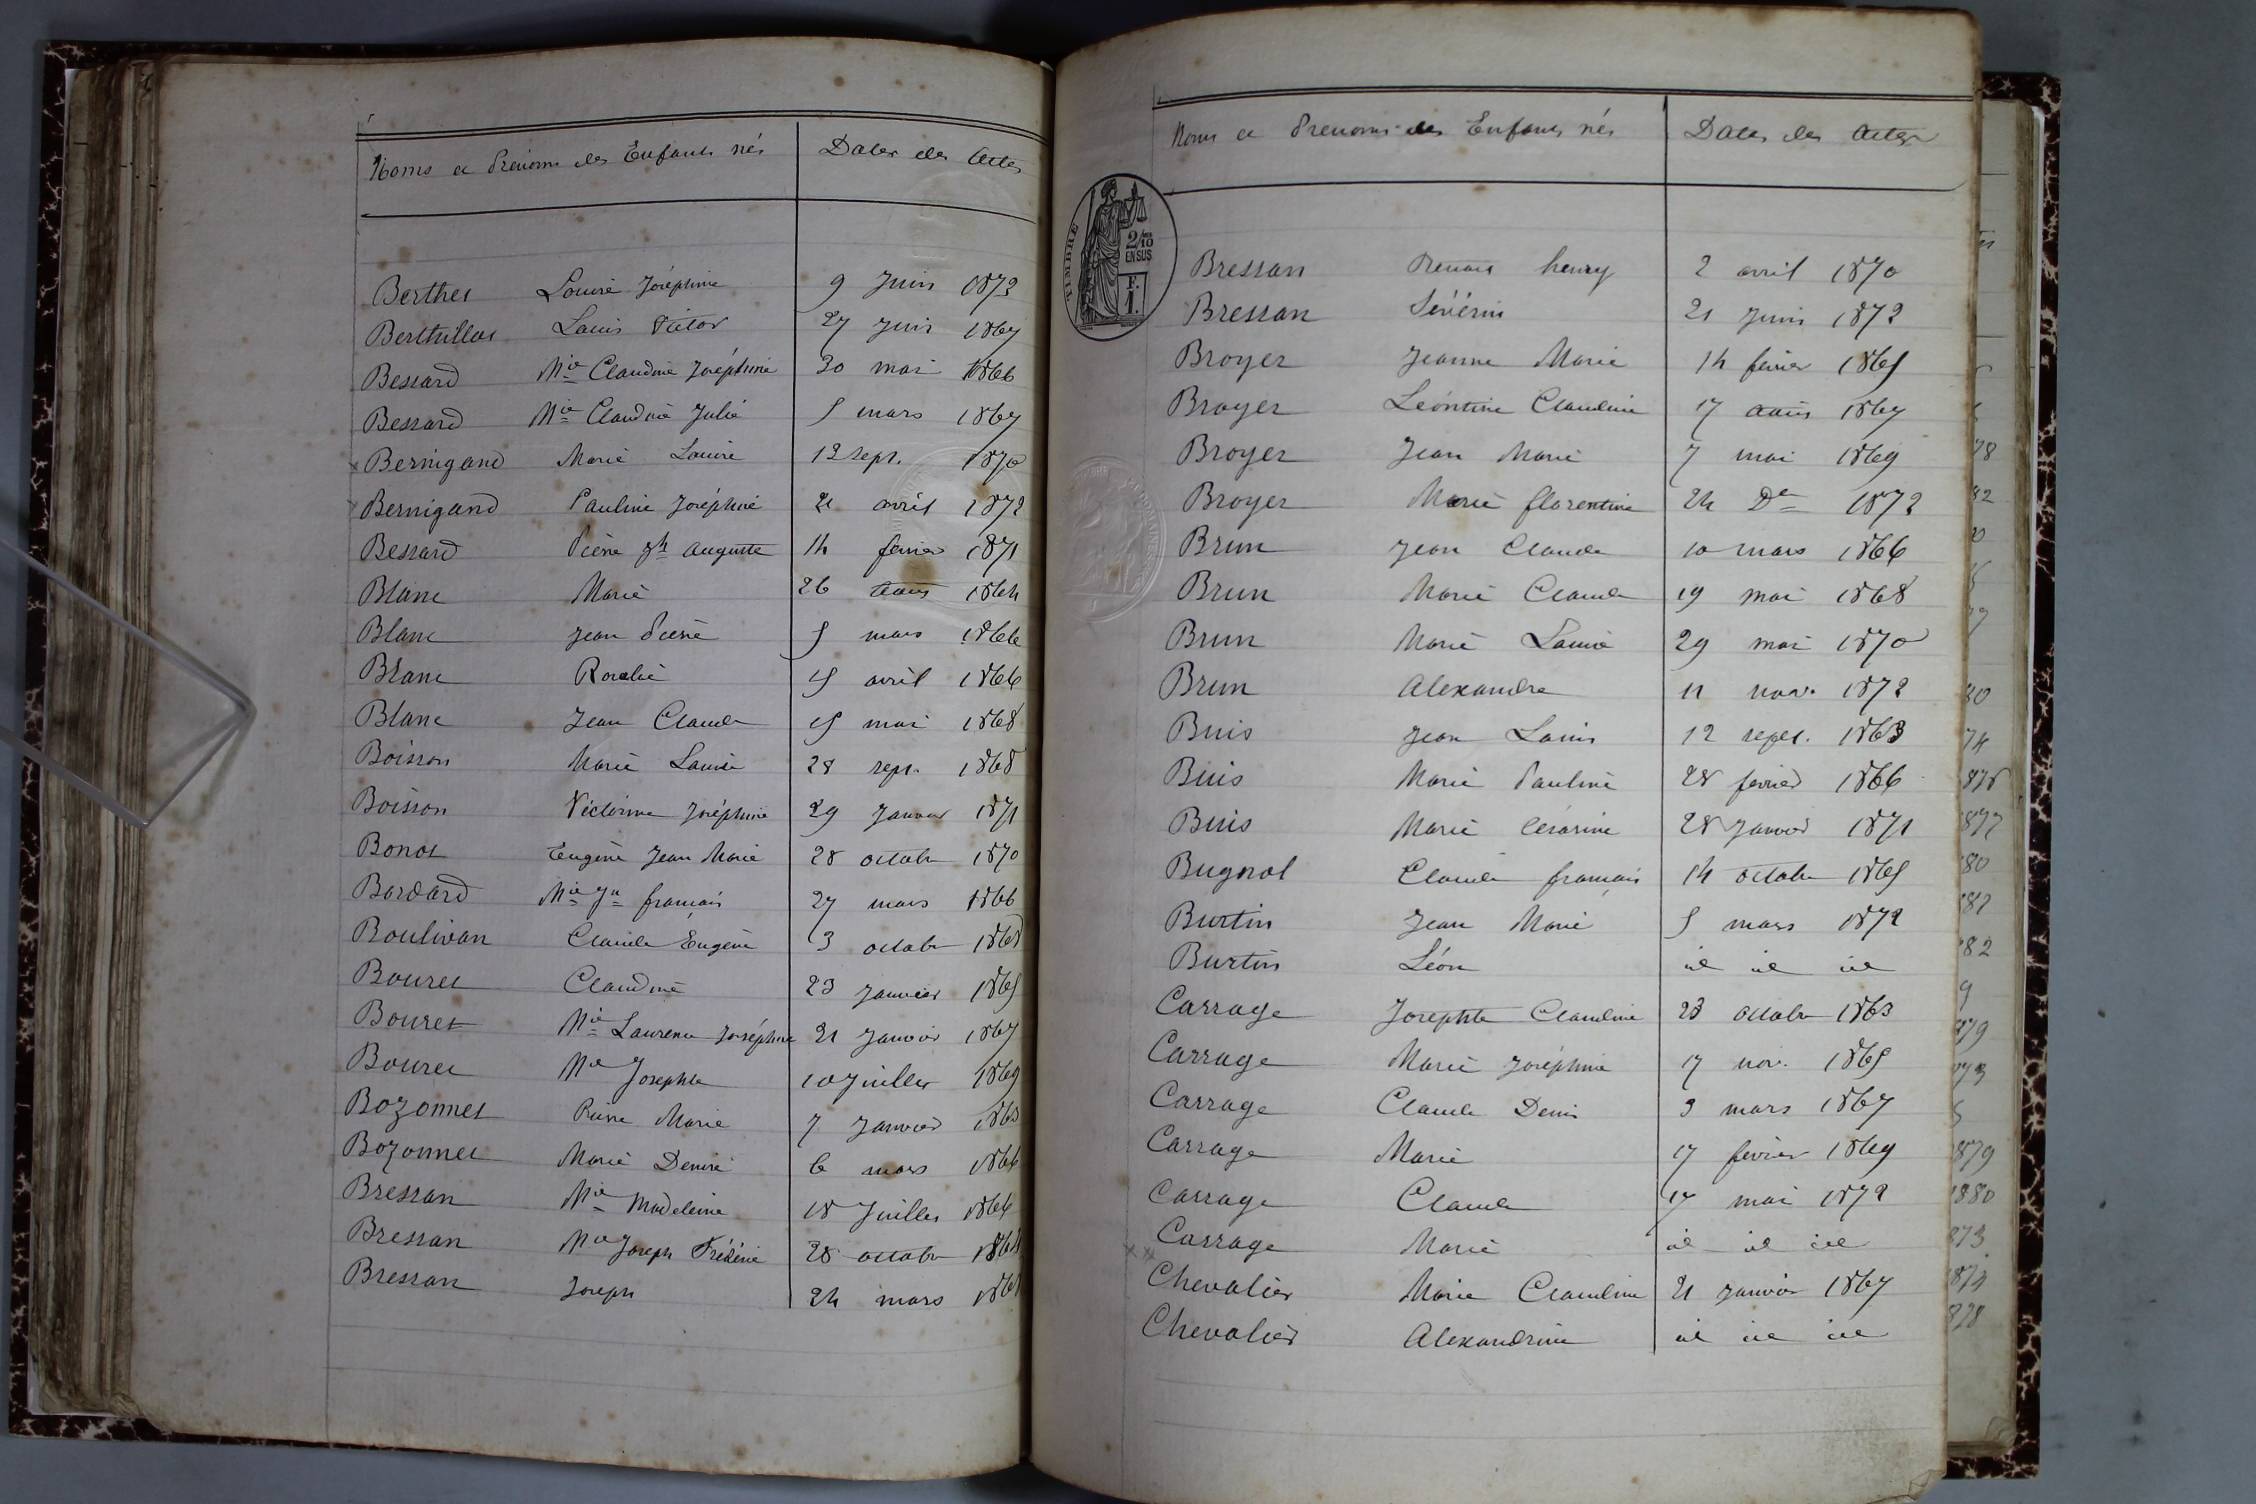 Noms et Prénoms des Enfants nés Dates des Actes
Berthet Louise Joséphine 9 Juin 1873
Berthillot Louis Victor 27 Juin 1867
Bessard Mie Claudine Joséphine 30 mai 1866
Bessard Mie Claudine Julie 5 mars 1867
Bernigand Marie Louise 12 sept. 1870
Bernigand Pauline Joséphine 21 avril 1872
Bessard Pierre Jh Auguste 14 fevrier 1871
Blanc Marie 26 Aout 1864
Blanc Jean Pierre 5 mars 1866
Blanc Rosalie 15 avril 1866
Blanc Jean Claude 15 mai 1868
Boisson Marie Louise 28 sept. 1868
Boisson Victorine Joséphine 29 Janvier 1871
Bonot Eugène Jean Marie 28 octobre 1870
Bardard Mie Jn françois 27 mars 1866
Boulivan Claude Eugène 3 octobre 1868
Bouret Claudine 23 Janvier 1865
Bouret Mie Laurence Joséphine 21 Janvier 1867
Bouret Mie Josephte 10 Juillet 1869
Bozonnet Pierre Marie 7 Janvier 1863
Bozonnet Marie Denise 6 mars 1866
Bressan Mie Madeleine 18 Juillet 1866
Bressan Mie Joseph Frédéric 28 octobre
Bressan Joseph 24 mars
Noms et Prenoms des Enfants nés Dates des Actes
TIMBRE
2/10
EN SUS
F.
1.
Bressan henry 2 avril 1870
Bressan Sévérin 21 Juin 1872
Broyer Jeanne Marie 14 fevrier 1865
Broyer Léontine Claudine 17 aout 1867
Broyer Jean Marie 7 mai 1869
Broyer Marie florentine 24 De 1872
Brun Jean Claude 10 mars 1866
Brun Marie Claude 19 mai 1868
Brun Marie Louise 29 mai 1870
Brun Alexandre 11 nov. 1872
Buis Jean Louis 12 sept. 1863
Buis Marie Pauline 28 fevrier 1866
Buis Marie Césarine 28 Janvier 1871
Bugnot Claude françois 14 octobre 1865
Burtin Jean Marie 5 mars 1872
Burtin Léon id id id
Carrage Josephte Claudine 23 octobre 1863
Carrage Marie Joséphine 17 nov. 1865
Carrage Claude Denis 3 mars 1867
Carrage Marie 17 fevrier 1869
Carrage Claude 17 mai 1872
Carrage Marie id id id
Chevalier Marie Claudine 21 Janvier 1867
Chevalier Alexandrine id id id